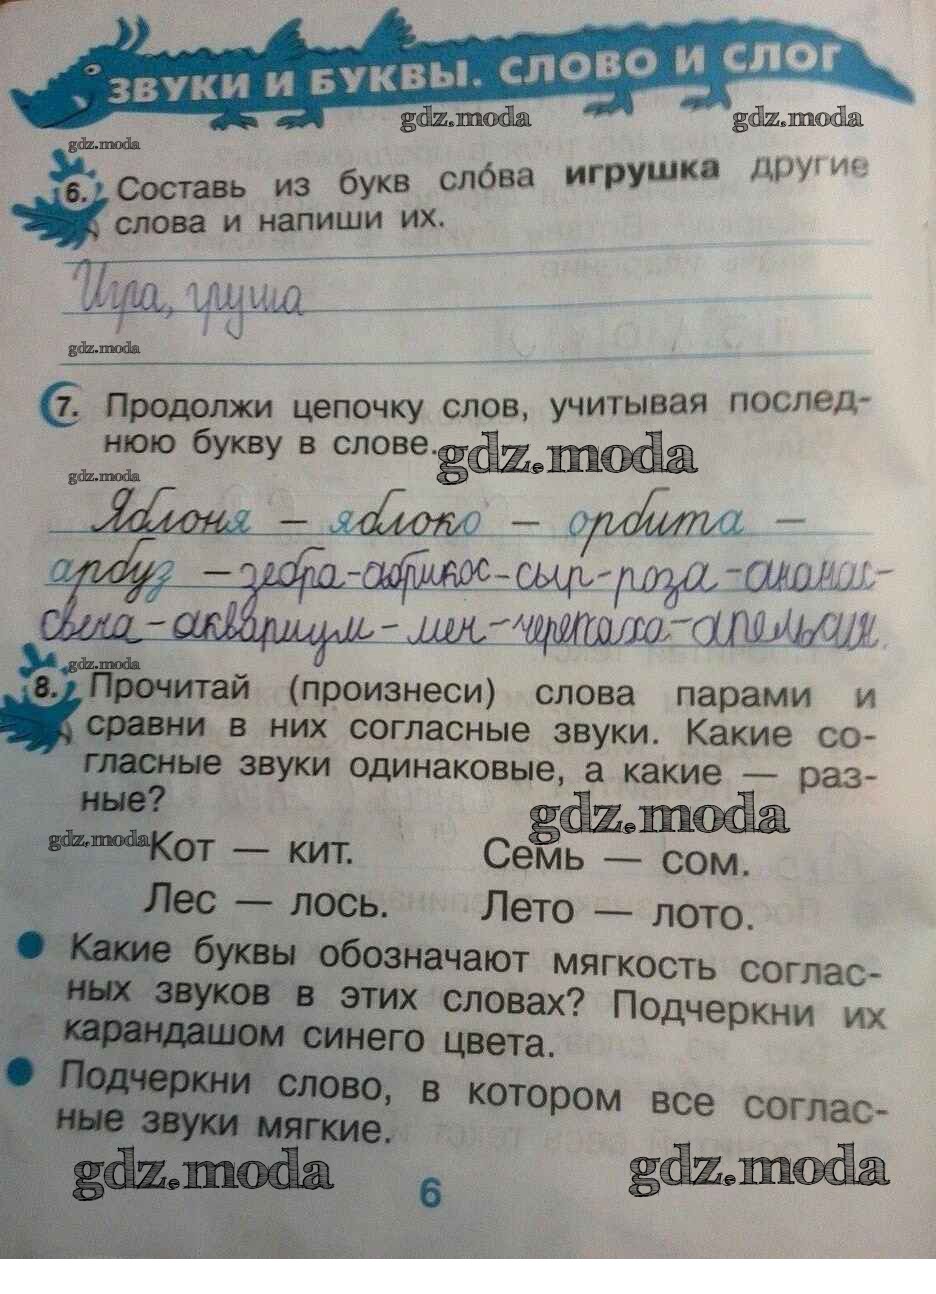 ЗВУКИ И БУКВЫ. СЛОВО И СЛОГ
gdz.moda gdz.moda
gdz.moda
6. Составь из букв сло́ва игрушка другие
слова и напиши их.
Игра, груша
gdz.moda
7. Продолжи цепочку слов, учитывая послед-
нюю букву в слове.
gdz.moda
gdz.moda
Яблоня – яблоко – орбита –
арбуз – зебра-абрикос-сыр-роза-ананас-
свеча-аквариум-меч-черепаха-апельсин.
gdz.moda
8. Прочитай (произнеси) слова парами и
сравни в них согласные звуки. Какие со-
гласные звуки одинаковые, а какие — раз-
ные?
gdz.moda
gdz.moda
Кот — кит. Семь — сом.
Лес — лось. Лето — лото.
Какие буквы обозначают мягкость соглас-
ных звуков в этих словах? Подчеркни их
карандашом синего цвета.
Подчеркни слово, в котором все соглас-
ные звуки мягкие.
gdz.moda gdz.moda
6